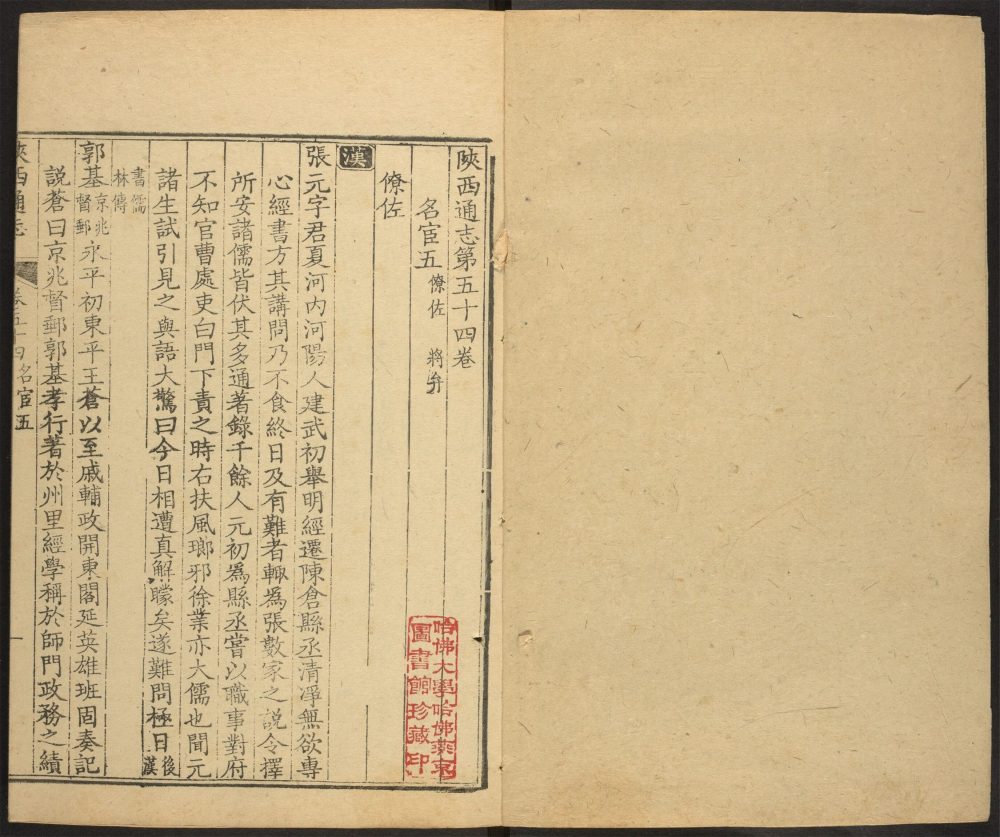 陝西通志第五十四卷
名宦五 僚佐 將弁
僚佐
漢
張元字君夏河內河陽人建武初舉明經遷陳倉縣丞清凈無欲專
心經書方其講問乃不食終日及有難者輒為張數家之說令擇
所安諸儒皆伏其多通著錄千餘人元初為縣丞嘗以職事對府
不知官曹處吏白門下責之時右扶風瑯邪徐業亦大儒也聞元
諸生試引見之與語大驚曰今日相遭真解矇矣遂難問極日 後漢
書儒林傳
郭基 京兆督郵 永平初東平王蒼以至戚輔政開東閣延英雄班固奏記
說蒼曰京兆督郵郭基孝行著於州里經學稱於師門政務之績
陝西通志 卷五十四名宦五 一
哈佛大學哈佛燕京
圖書館珍藏印